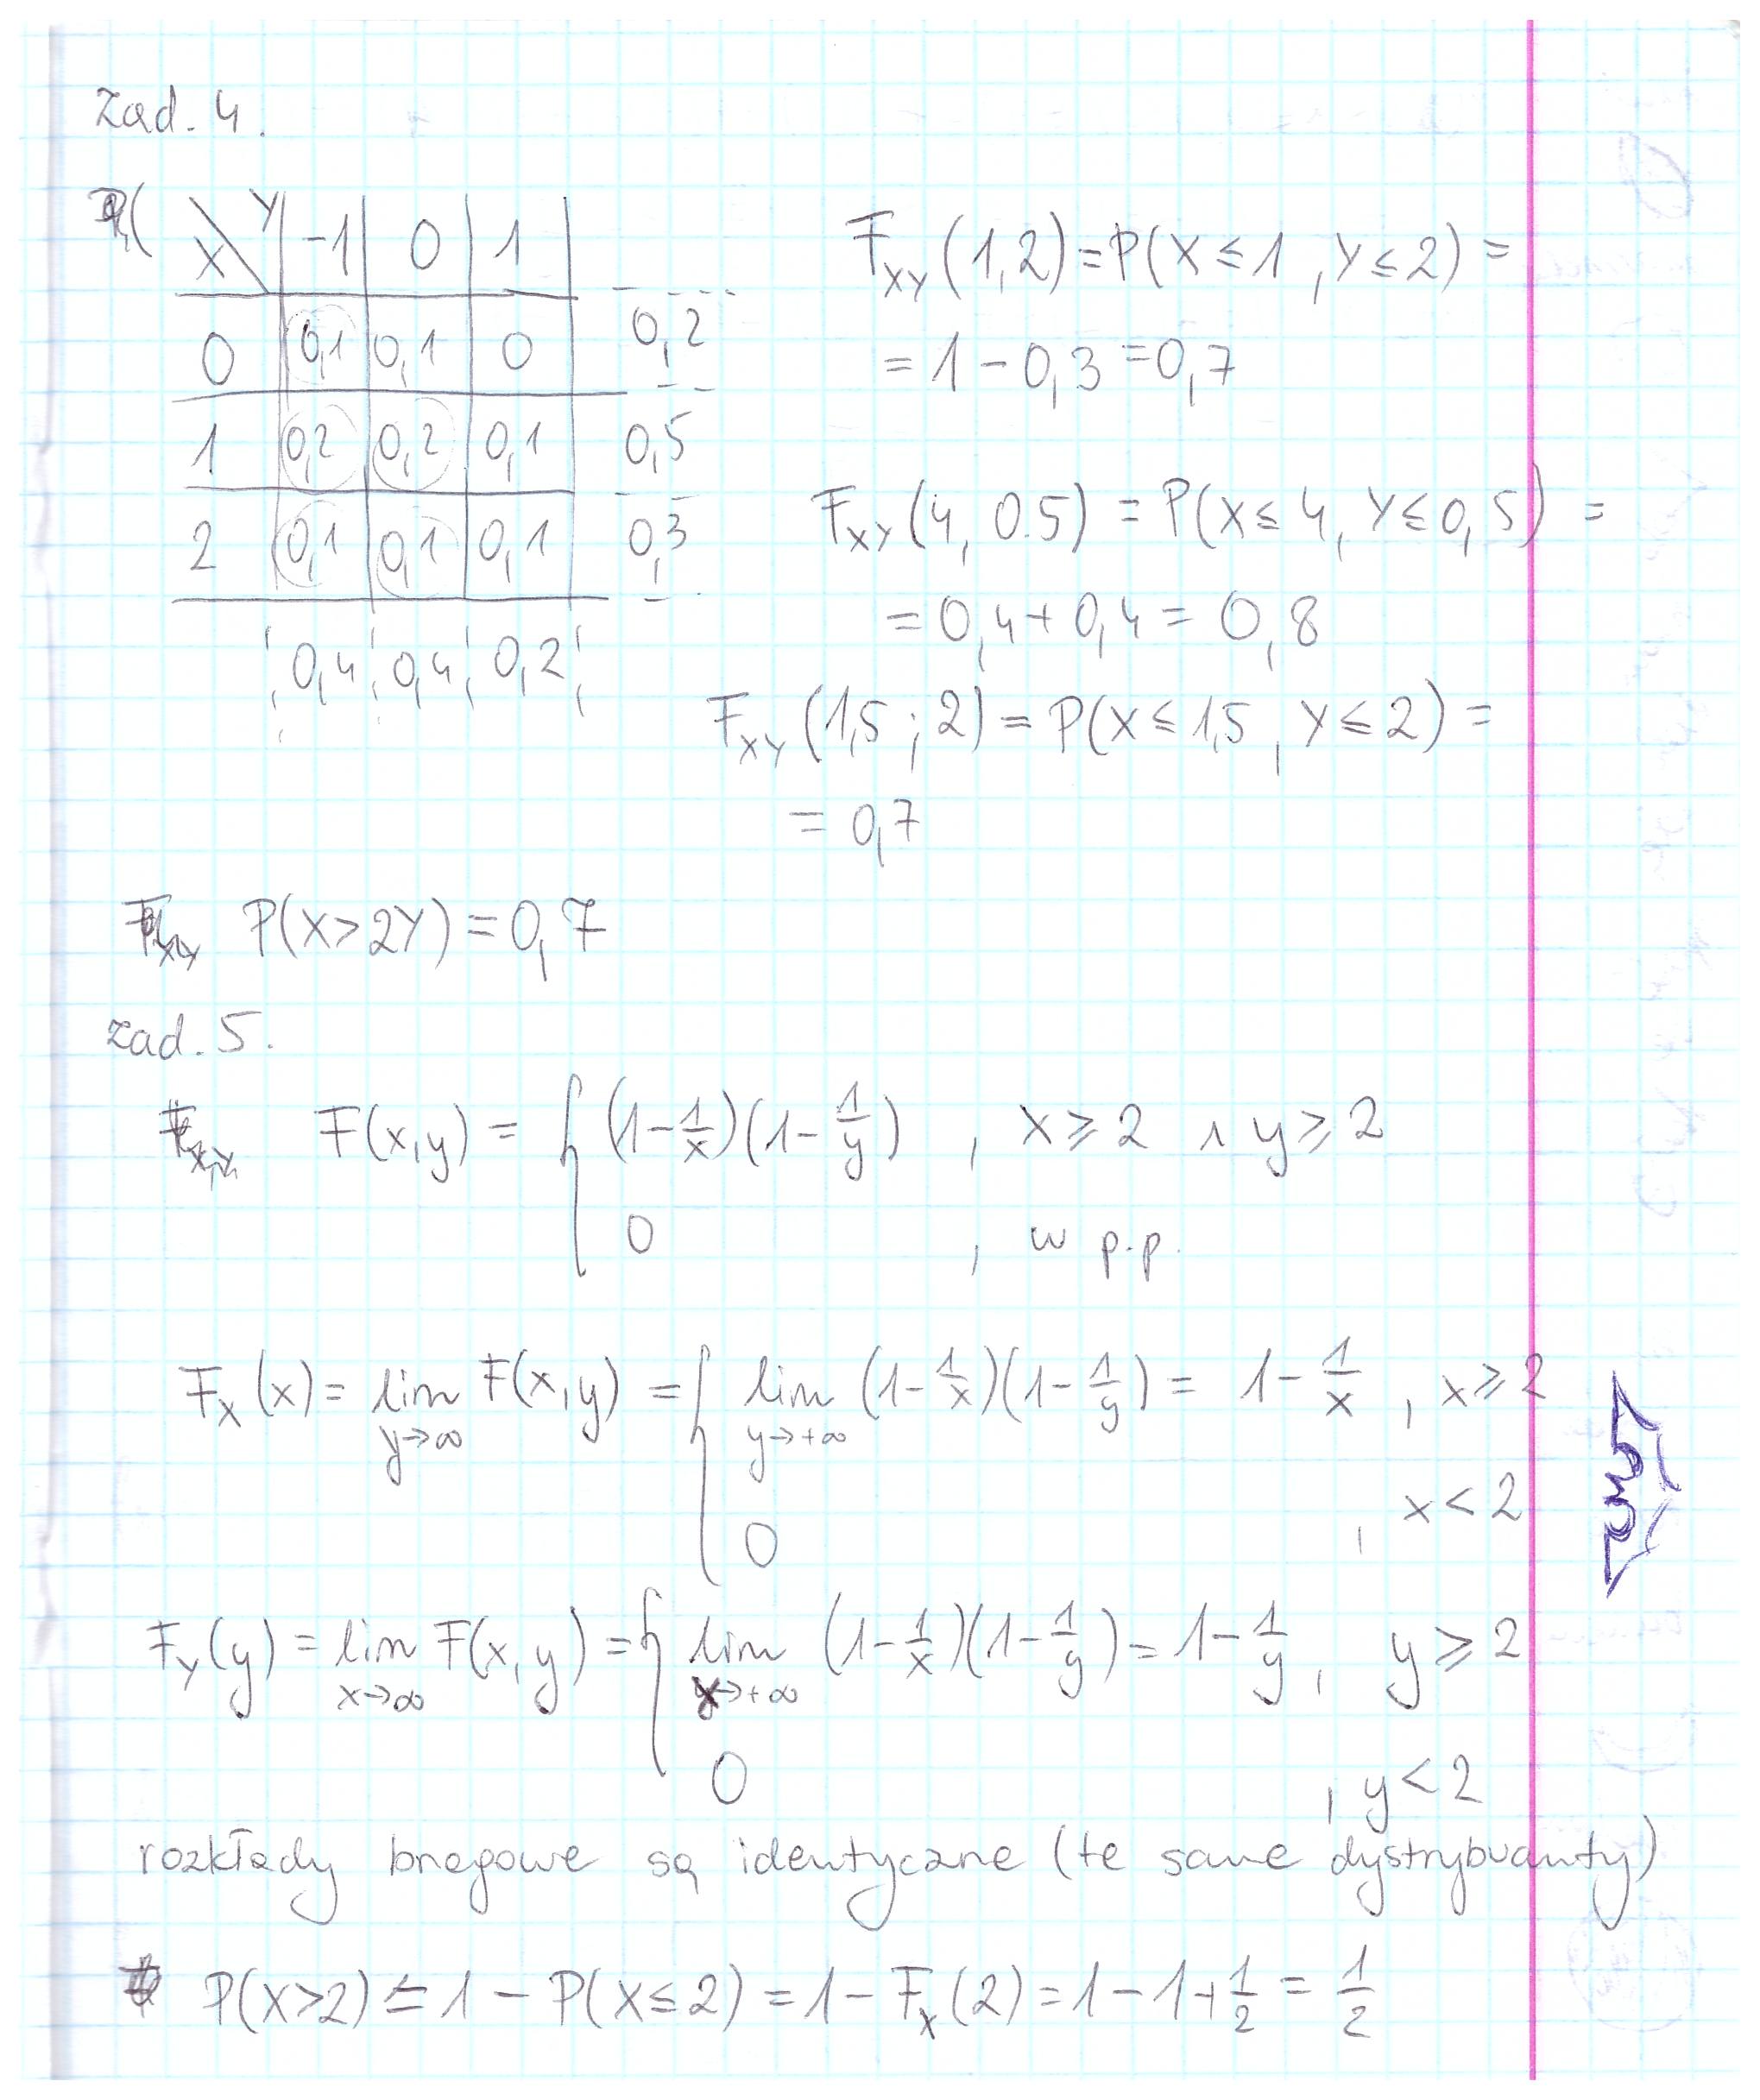 Zad. 4.
X Y -1 0 1
0 0,1 0,1 0 0,2
1 0,2 0,2 0,1 0,5
2 0,1 0,1 0,1 0,3
0,4 0,4 0,2
F_XY (1,2) = P(X ≤ 1, Y ≤ 2) =
= 1 - 0,3 = 0,7
F_XY (4, 0.5) = P(X ≤ 4, Y ≤ 0,5) =
= 0,4 + 0,4 = 0,8
F_XY (1,5 ; 2) = P(X ≤ 1,5, Y ≤ 2) =
= 0,7
P(X > 2Y) = 0,7
Zad. 5.
F(x,y) = { (1 - 1/x)(1 - 1/y) , x ≥ 2 ∧ y ≥ 2
0 , w p.p.
F_X (x) = lim y→∞ F(x,y) = { lim y→+∞ (1 - 1/x)(1 - 1/y) = 1 - 1/x , x ≥ 2
0 , x < 2
F_Y (y) = lim x→∞ F(x,y) = { lim x→+∞ (1 - 1/x)(1 - 1/y) = 1 - 1/y , y ≥ 2
0 , y < 2
rozkłady brzegowe są identyczne (te same dystrybuanty)
P(X > 2) = 1 - P(X ≤ 2) = 1 - F_X (2) = 1 - 1 + 1/2 = 1/2